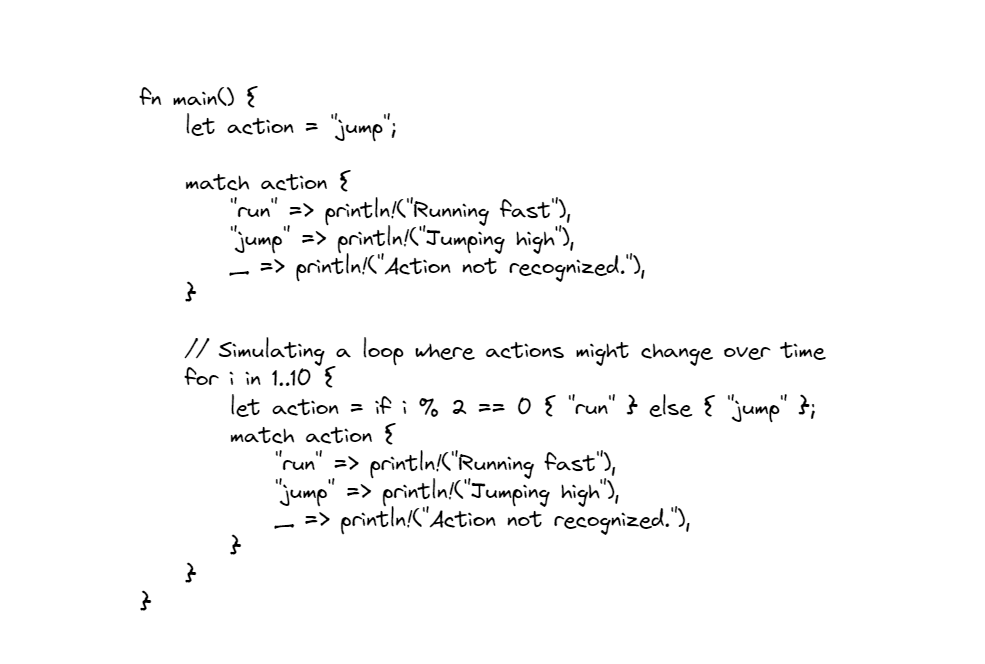 fn main() {
    let action = "jump";

    match action {
        "run" => println!("Running fast"),
        "jump" => println!("Jumping high"),
        _ => println!("Action not recognized."),
    }

    // Simulating a loop where actions might change over time
    for i in 1..10 {
        let action = if i % 2 == 0 { "run" } else { "jump" };
        match action {
            "run" => println!("Running fast"),
            "jump" => println!("Jumping high"),
            _ => println!("Action not recognized."),
        }
    }
}